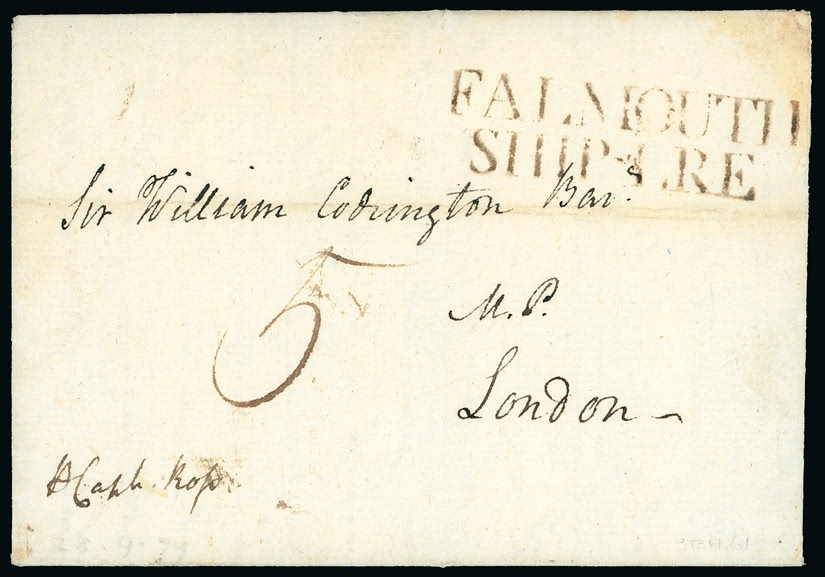 FALMOUTH
SHIP-LRE
Sir William Codrington Bar.ᵗ
5
M.P.
London
Capt. Ross.
28.9.79